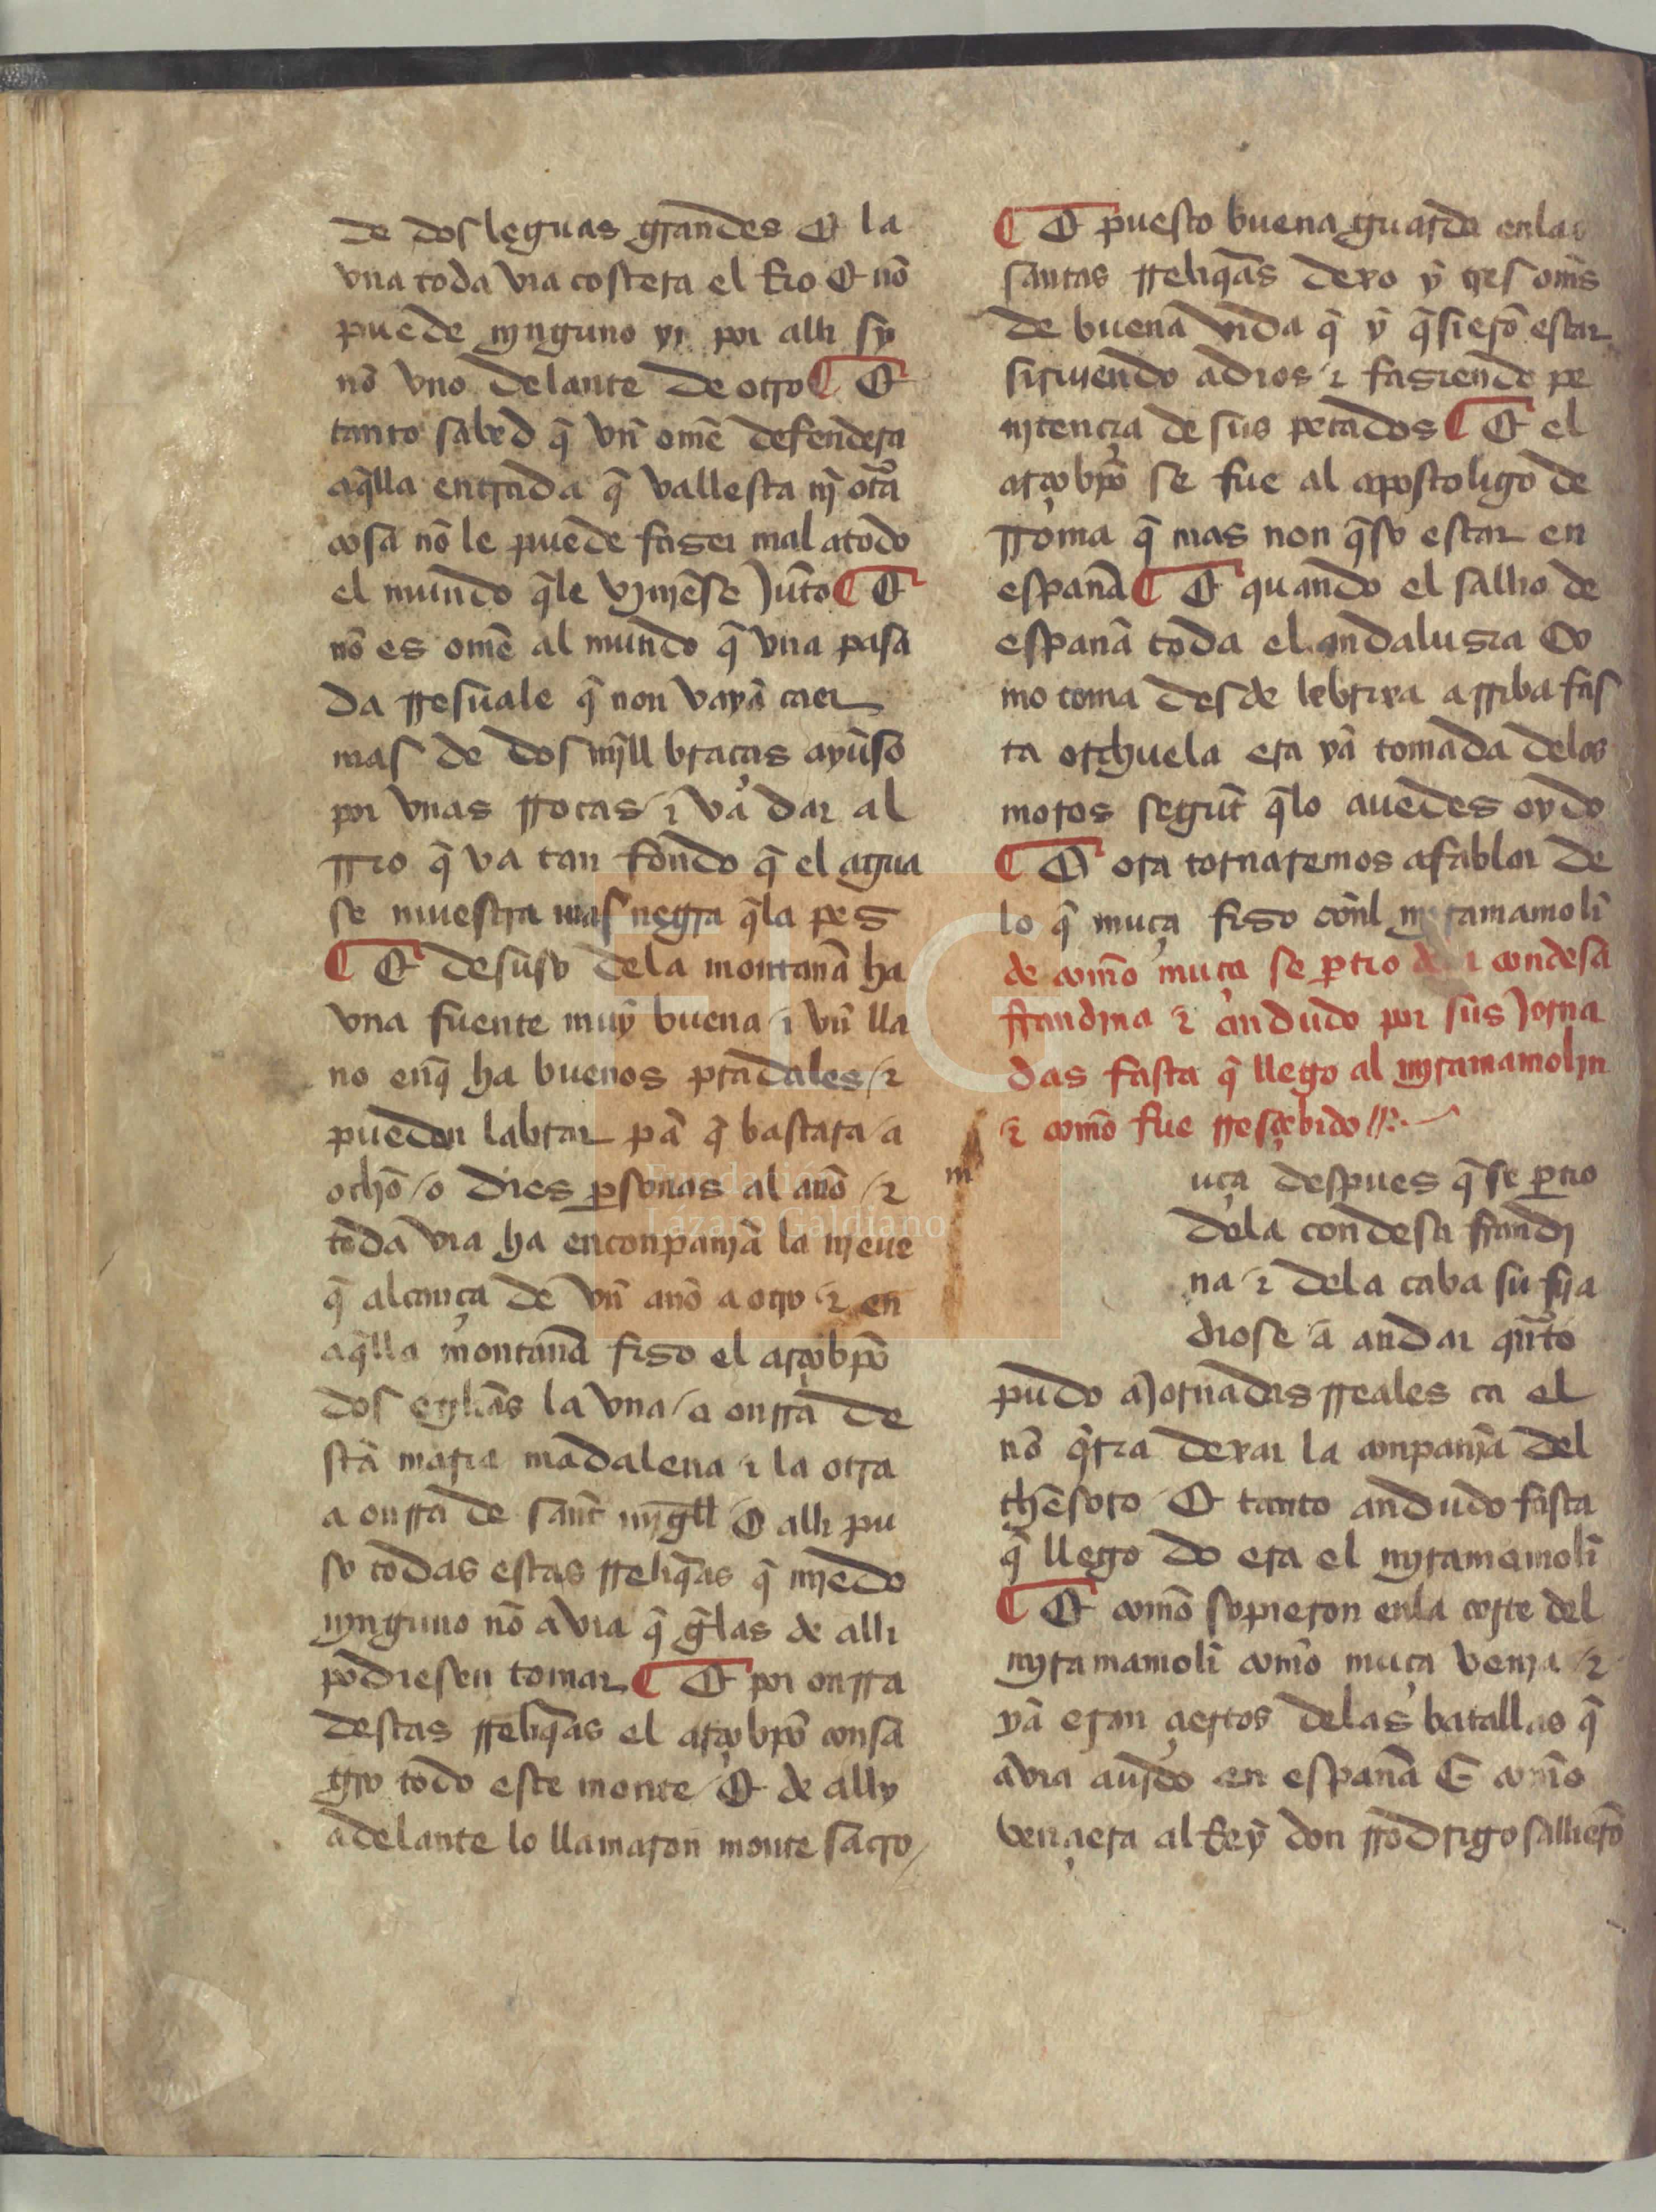 de dos leguas grandes Et la
vna toda via costera el Rio Et nõ
puede njnguno yr por alli sy
nõ vno delante de otro ¶ Et
tanto sabed q̃ vñ omẽ defendera
aq̃lla entrada q̃ vallesta nj̃ otra
cosa nõ le puede faser mal a todo
el mundo q̃le vjnjẽse Jũto ¶ Et
nõ es omẽ al mundo q̃ vna pasa
da rresuale q̃ non vaya caer
mas de dos mjll braças ayuso
por vnas rrocas ⁊ va dar al
rrio q̃ va tan fondo q̃ el agua
se muestra mas negra q̃la pes
¶ Et desuso dela montanã ha
vna fuente muy buena ⁊ vñ lla
no enq̃ ha buenos pradales / ⁊
pueden labrar pã q̃ bastara / a
ocho / o dies ꝑsonas al anõ / ⁊
toda via ha enconpanjã la njeue
q̃ alcança de vñ anõ a otro / ⁊ en
aq̃lla montanã fiso el arçobp̃o
dos eglıãs la vna / a onrra de
stã maria madalena ⁊ la otra
a onrra de sant mjgll / Et alli pu
so todas estas rreliq̃as q̃ mjedo
njnguno nõ avia q̃ g̃las de alli
podiesen tomar ¶ Et por onrra
destas rreliq̃as el arçobp̃o consa
gro todo este monte / Et de ally
adelante lo llamaron monte sacro /
¶ Et puesto buena guarda enlas
santas rreliq̃as dexo y tres oms̃
de buena vida q̃ y q̃sierõ estar
siruiendo a dios ⁊ fasiendo pe
njtencia de sus pecados ¶ Et el
arçobp̃o se fue al apostoligo de
rroma q̃ mas non q̃so estar en
espanã ¶ Et quando el sallio de
espanã toda el andalusia co
mo toma desde lebrixa arriba fas
ta orihuela era ya tomada delos
moros segũt q̃lo auedes oydo
¶ Et ora tornaremos a fablar de
lo q̃ muça fiso cõnl mjramamoli
de como muça se ꝑtio condesa
frandina ⁊ andudo por sus Jorna
das fasta q̃ llego al mjramamolin
⁊ como fue rresçebido
m
uça despues q̃ se ꝑtio
dela condesa frandj
na ⁊ dela caba su fija
diose a andar q̃nto
pudo a Jornadas rreales ca el
nõ q̃ria dexar la conpanjã del
thesoro Et tanto andudo fasta
q̃ llego do era el mjramamoli
¶ Et como sopieron enla corte del
mjramamoli como muça venja / ⁊
ya eran çiertos delas batallas q̃
avia aujdo en espanã E como
vençiera al Rey don rrodrigo sallierõ